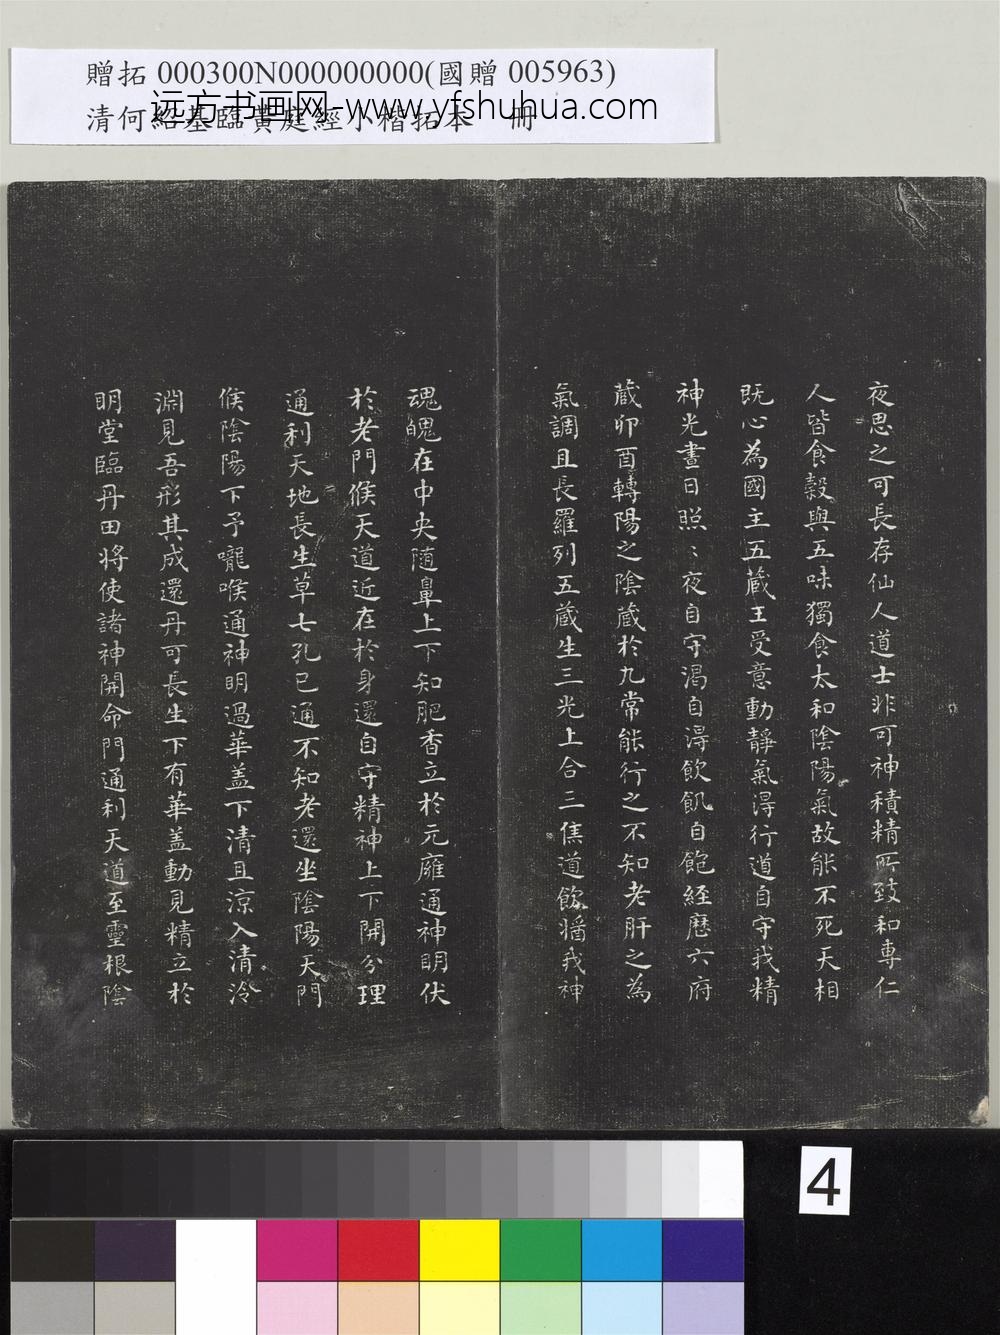 贈拓 000300N000000000(國贈 005963)
清何紹基臨黃庭經小楷拓本 冊
远方书画网-www.yfshuhua.com
夜思之可長存仙人道士非可神積精所致和專仁
人皆食穀與五味獨食太和陰陽氣故能不死天相
既心為國主五蔵王受意動靜氣淂行道自守我精
神光晝日照〻夜自守渴自淂飲飢自飽経歷六府
蔵卯酉轉陽之陰蔵於九常能行之不知老肝之為
氣調且長羅列五蔵生三光上合三焦道飲漿我神
魂魄在中央随鼻上下知肥香立於元廱通神明伏
於老門候天道近在於身還自守精神上下開分理
通利天地長生草七孔已通不知老還坐陰陽天門
候陰陽下予嚨喉通神明過華盖下清且涼入清泠
淵見吾形其成還丹可長生下有華盖動見精立於
明堂臨丹田将使諸神開命門通利天道至靈根陰
4